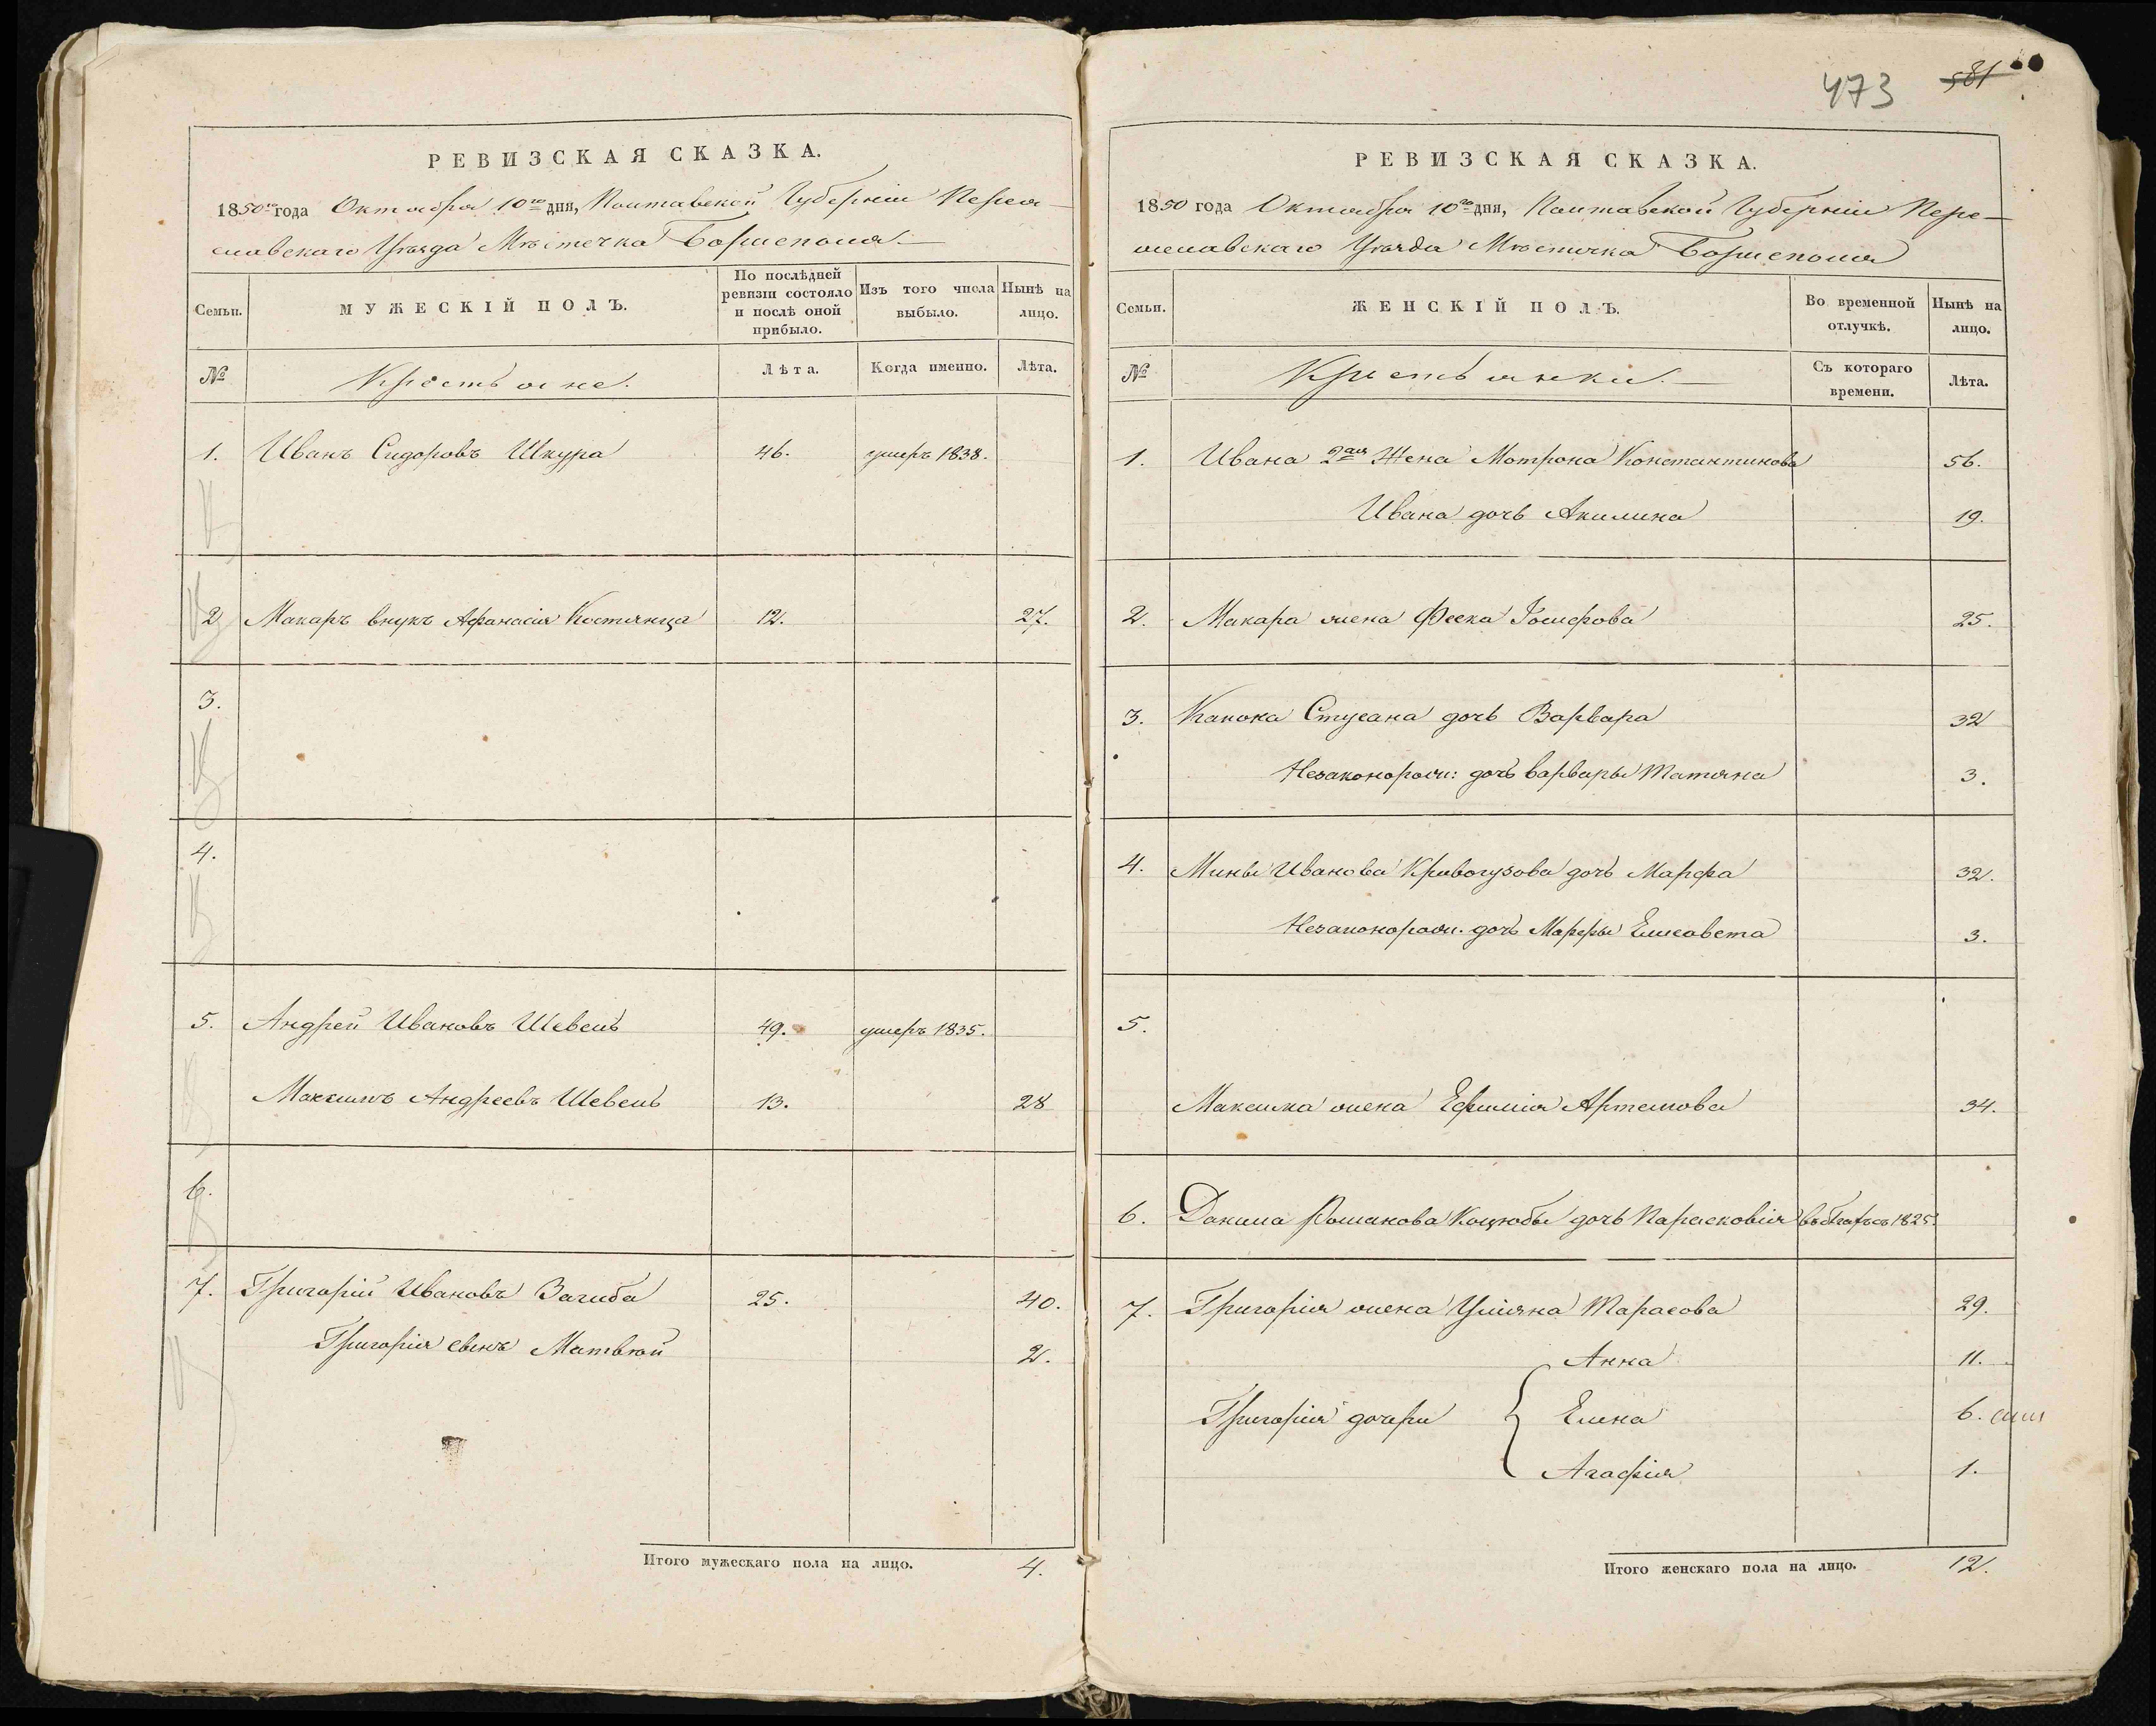 РЕВИЗСКАЯ СКАЗКА.
1850го года Октября 10го дня, Полтавской Губерніи Перея-
славскаго Уѣзда Мѣстечка Борисполя.
Семьи.
МУЖЕСКІЙ ПОЛЪ.
По послѣдней ревизіи состояло и послѣ оной прибыло.
Изъ того числа выбыло.
Нынѣ на лицо.
№
Крестьяне.
Лѣта.
Когда именно.
Лѣта.
1. Иванъ Сидоровъ Шкура 46. умеръ 1838.
2 Макаръ внукъ Афанасія Костянца 12. 27.
3.
4.
5. Андрей Ивановъ Шевець 49. умеръ 1835.
Максимъ Андреевъ Шевець 13. 28
6.
7. Григорій Ивановъ Загиба 25. 40.
Григорія сынъ Матвѣй 2.
Итого мужескаго пола на лицо. 4.
473 581
РЕВИЗСКАЯ СКАЗКА.
1850 года Октября 10го дня, Полтавской Губерніи Пере-
яславскаго Уѣзда Мѣстечка Борисполя
Семьи.
ЖЕНСКІЙ ПОЛЪ.
Во временной отлучкѣ.
Нынѣ на лицо.
№
Крестьянки.
Съ котораго времени.
Лѣта.
1. Ивана 2ая Жена Мотрона Константинова 56.
Ивана дочь Акилина 19.
2. Макара жена Феска Іосифова 25.
3. Канона Стусана дочь Варвара 32
Незаконорож: дочь Варвары Татяна 3.
4. Мины Иванова Кривогузова дочь Марфа 32.
Незаконорож. дочь Марфы Елисавета 3.
5.
Максима жена Ефимія Артемова 34.
6. Данила Романова Коцюбы дочь Парасковія въ бѣгахъ съ 1825.
7. Григорія жена Уліяна Тарасова 29.
Анна 11.
Григорія дочери { Елена 6.
Агафія 1.
Итого женскаго пола на лицо. 12.